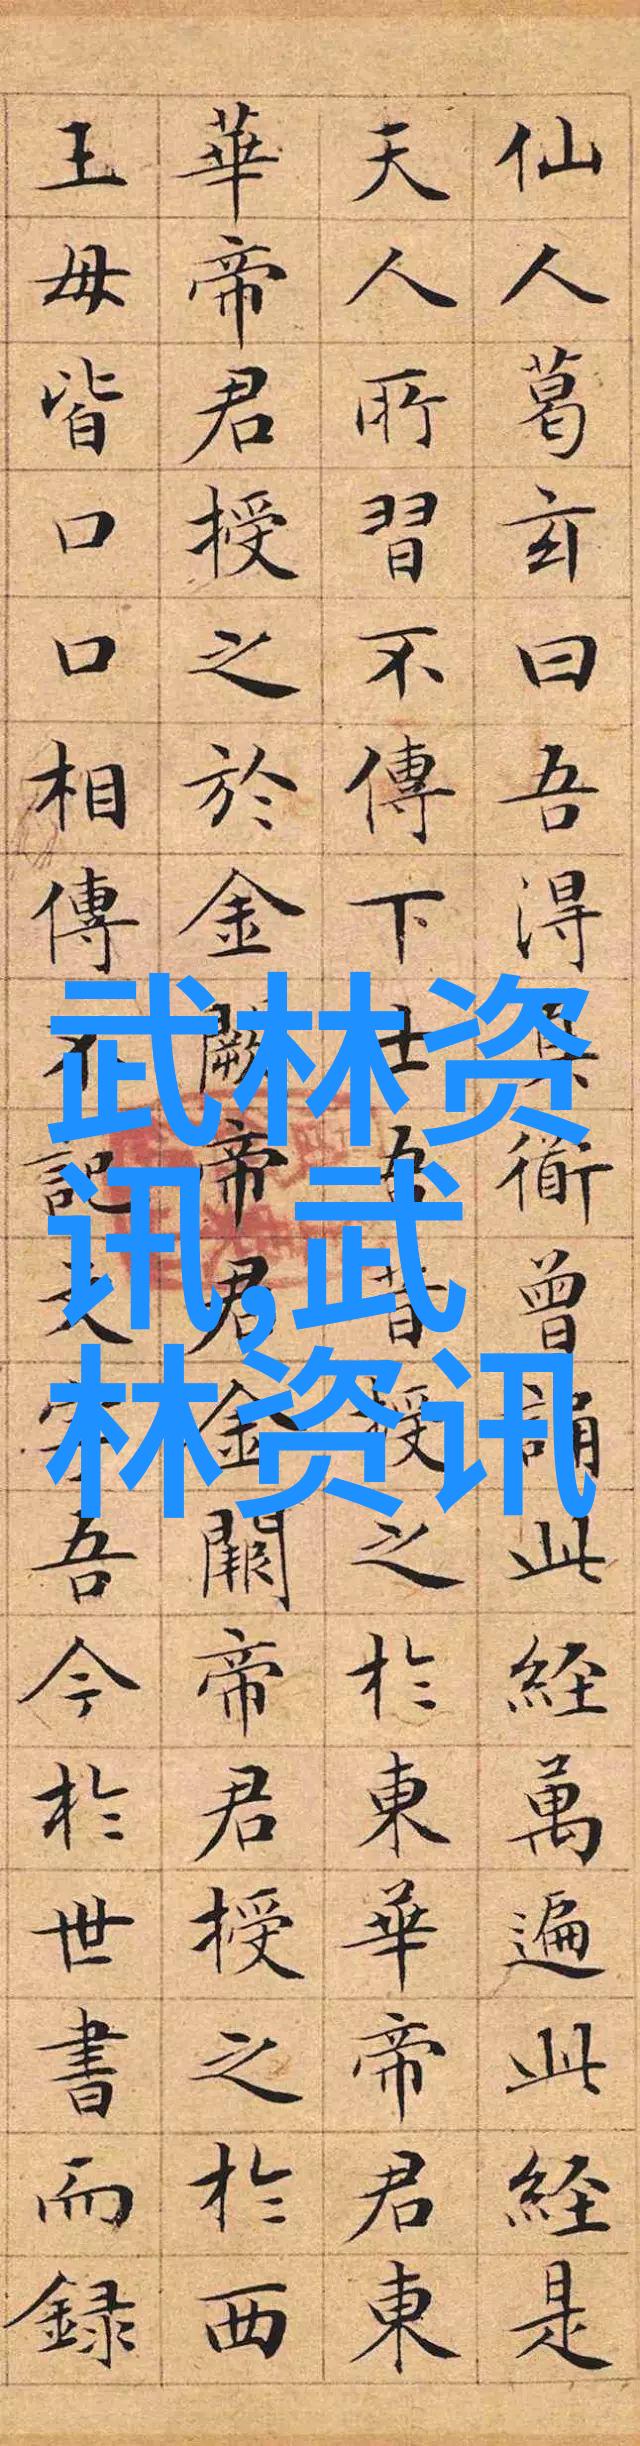 仙人葛玄曰吾淂真衜曾誦此経萬遍此経是
天人所習不傳下士吾昔授之於東華帝君東
華帝君授之於金闕帝君金闕帝君授之於西
王母皆口口相傳不記文字吾今於世書而録
武林资
讯,武
林资讯